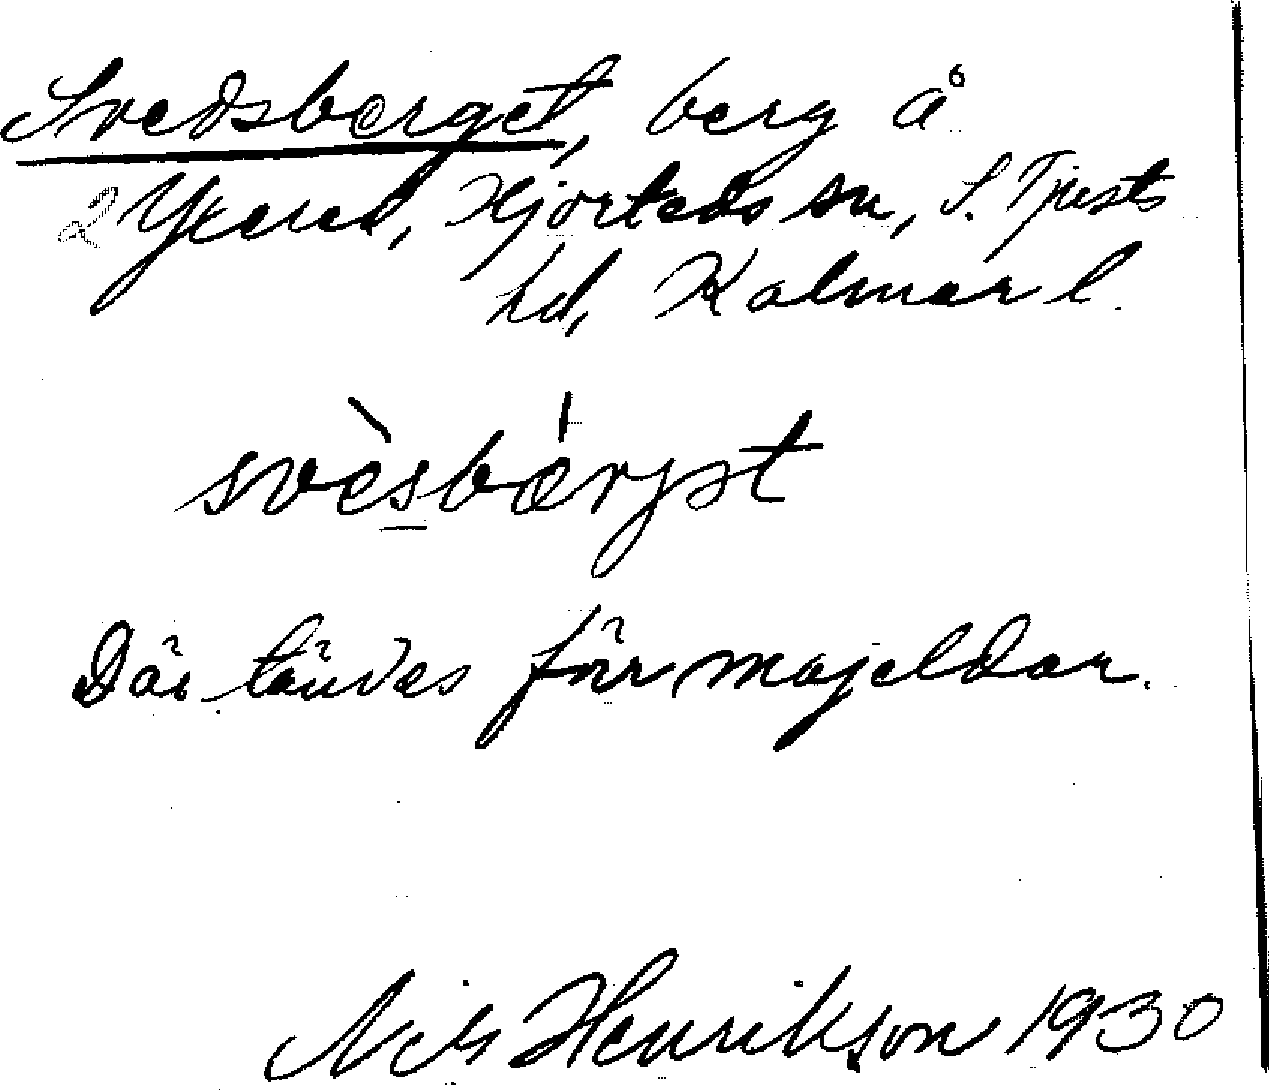 Svedsberget, berg å
2 Yxered, Hjorteds sn, S. Tjusts
hd, Kalmar l.
svèsbærjət
Där tändes förr majeldar.
Nils Henrikson 1930